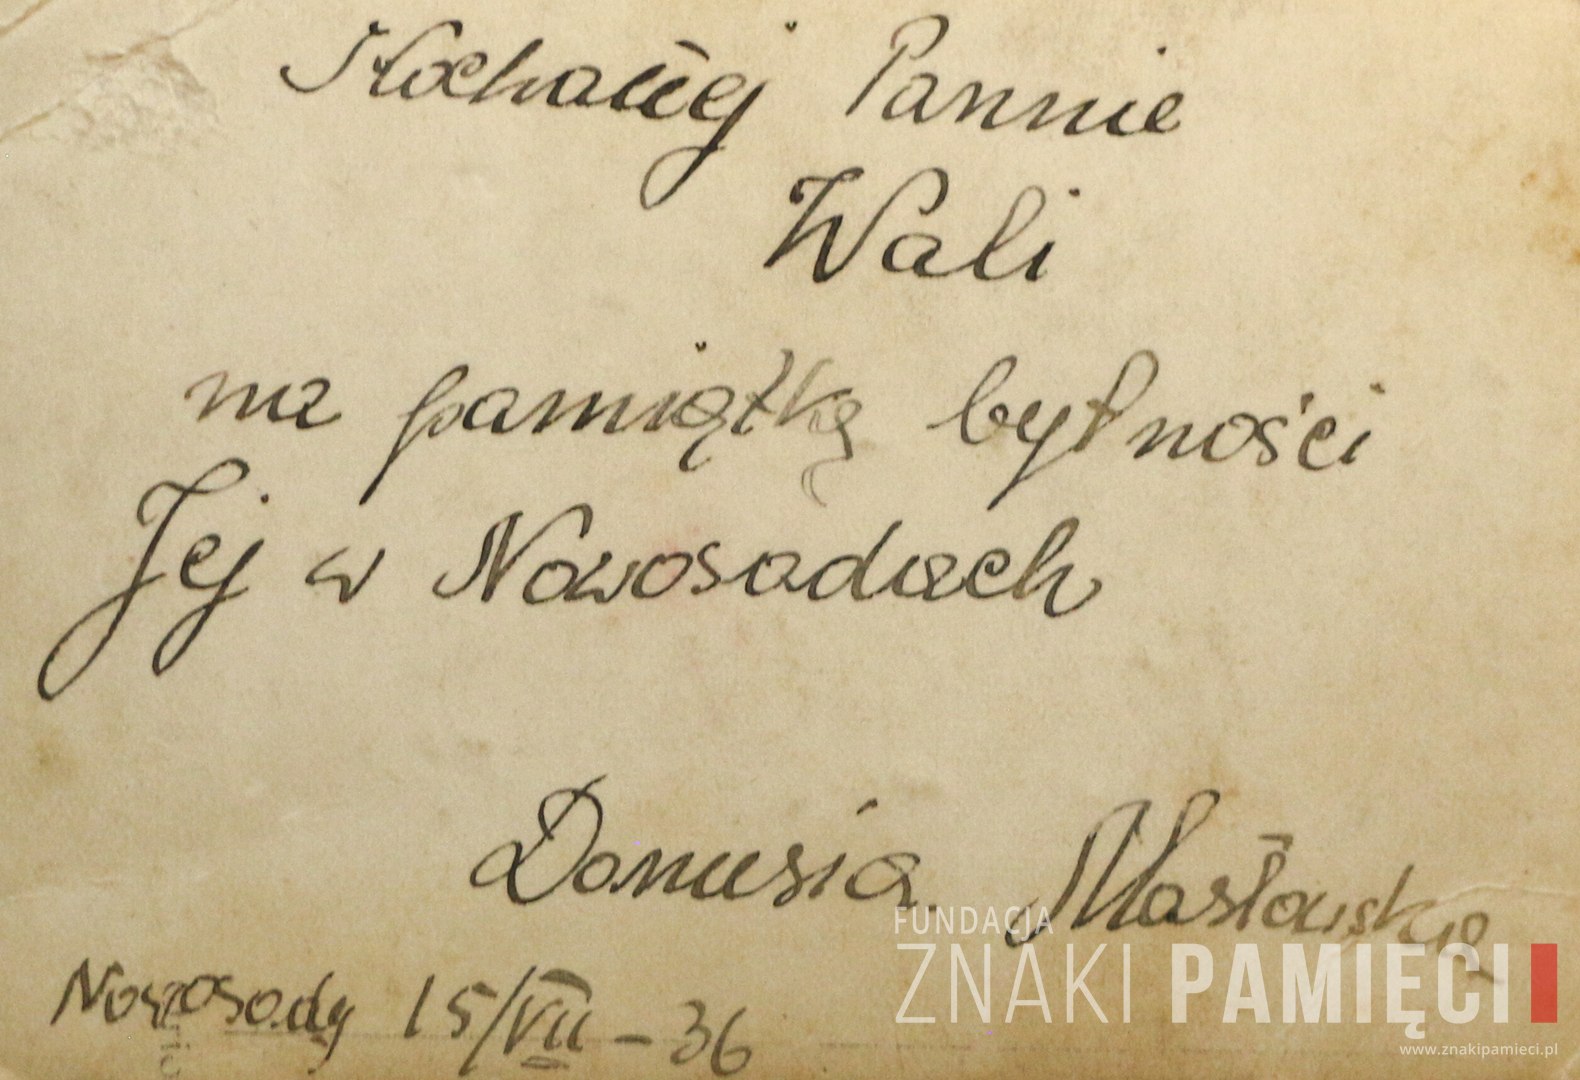 Kochanej Pannie
Wali
na pamiątkę bytności
Jej w Nowosadach
Danusia Masłowska
Nowosady 15/VII - 36
FUNDACJA
ZNAKI PAMIĘCI
www.znakipamieci.pl